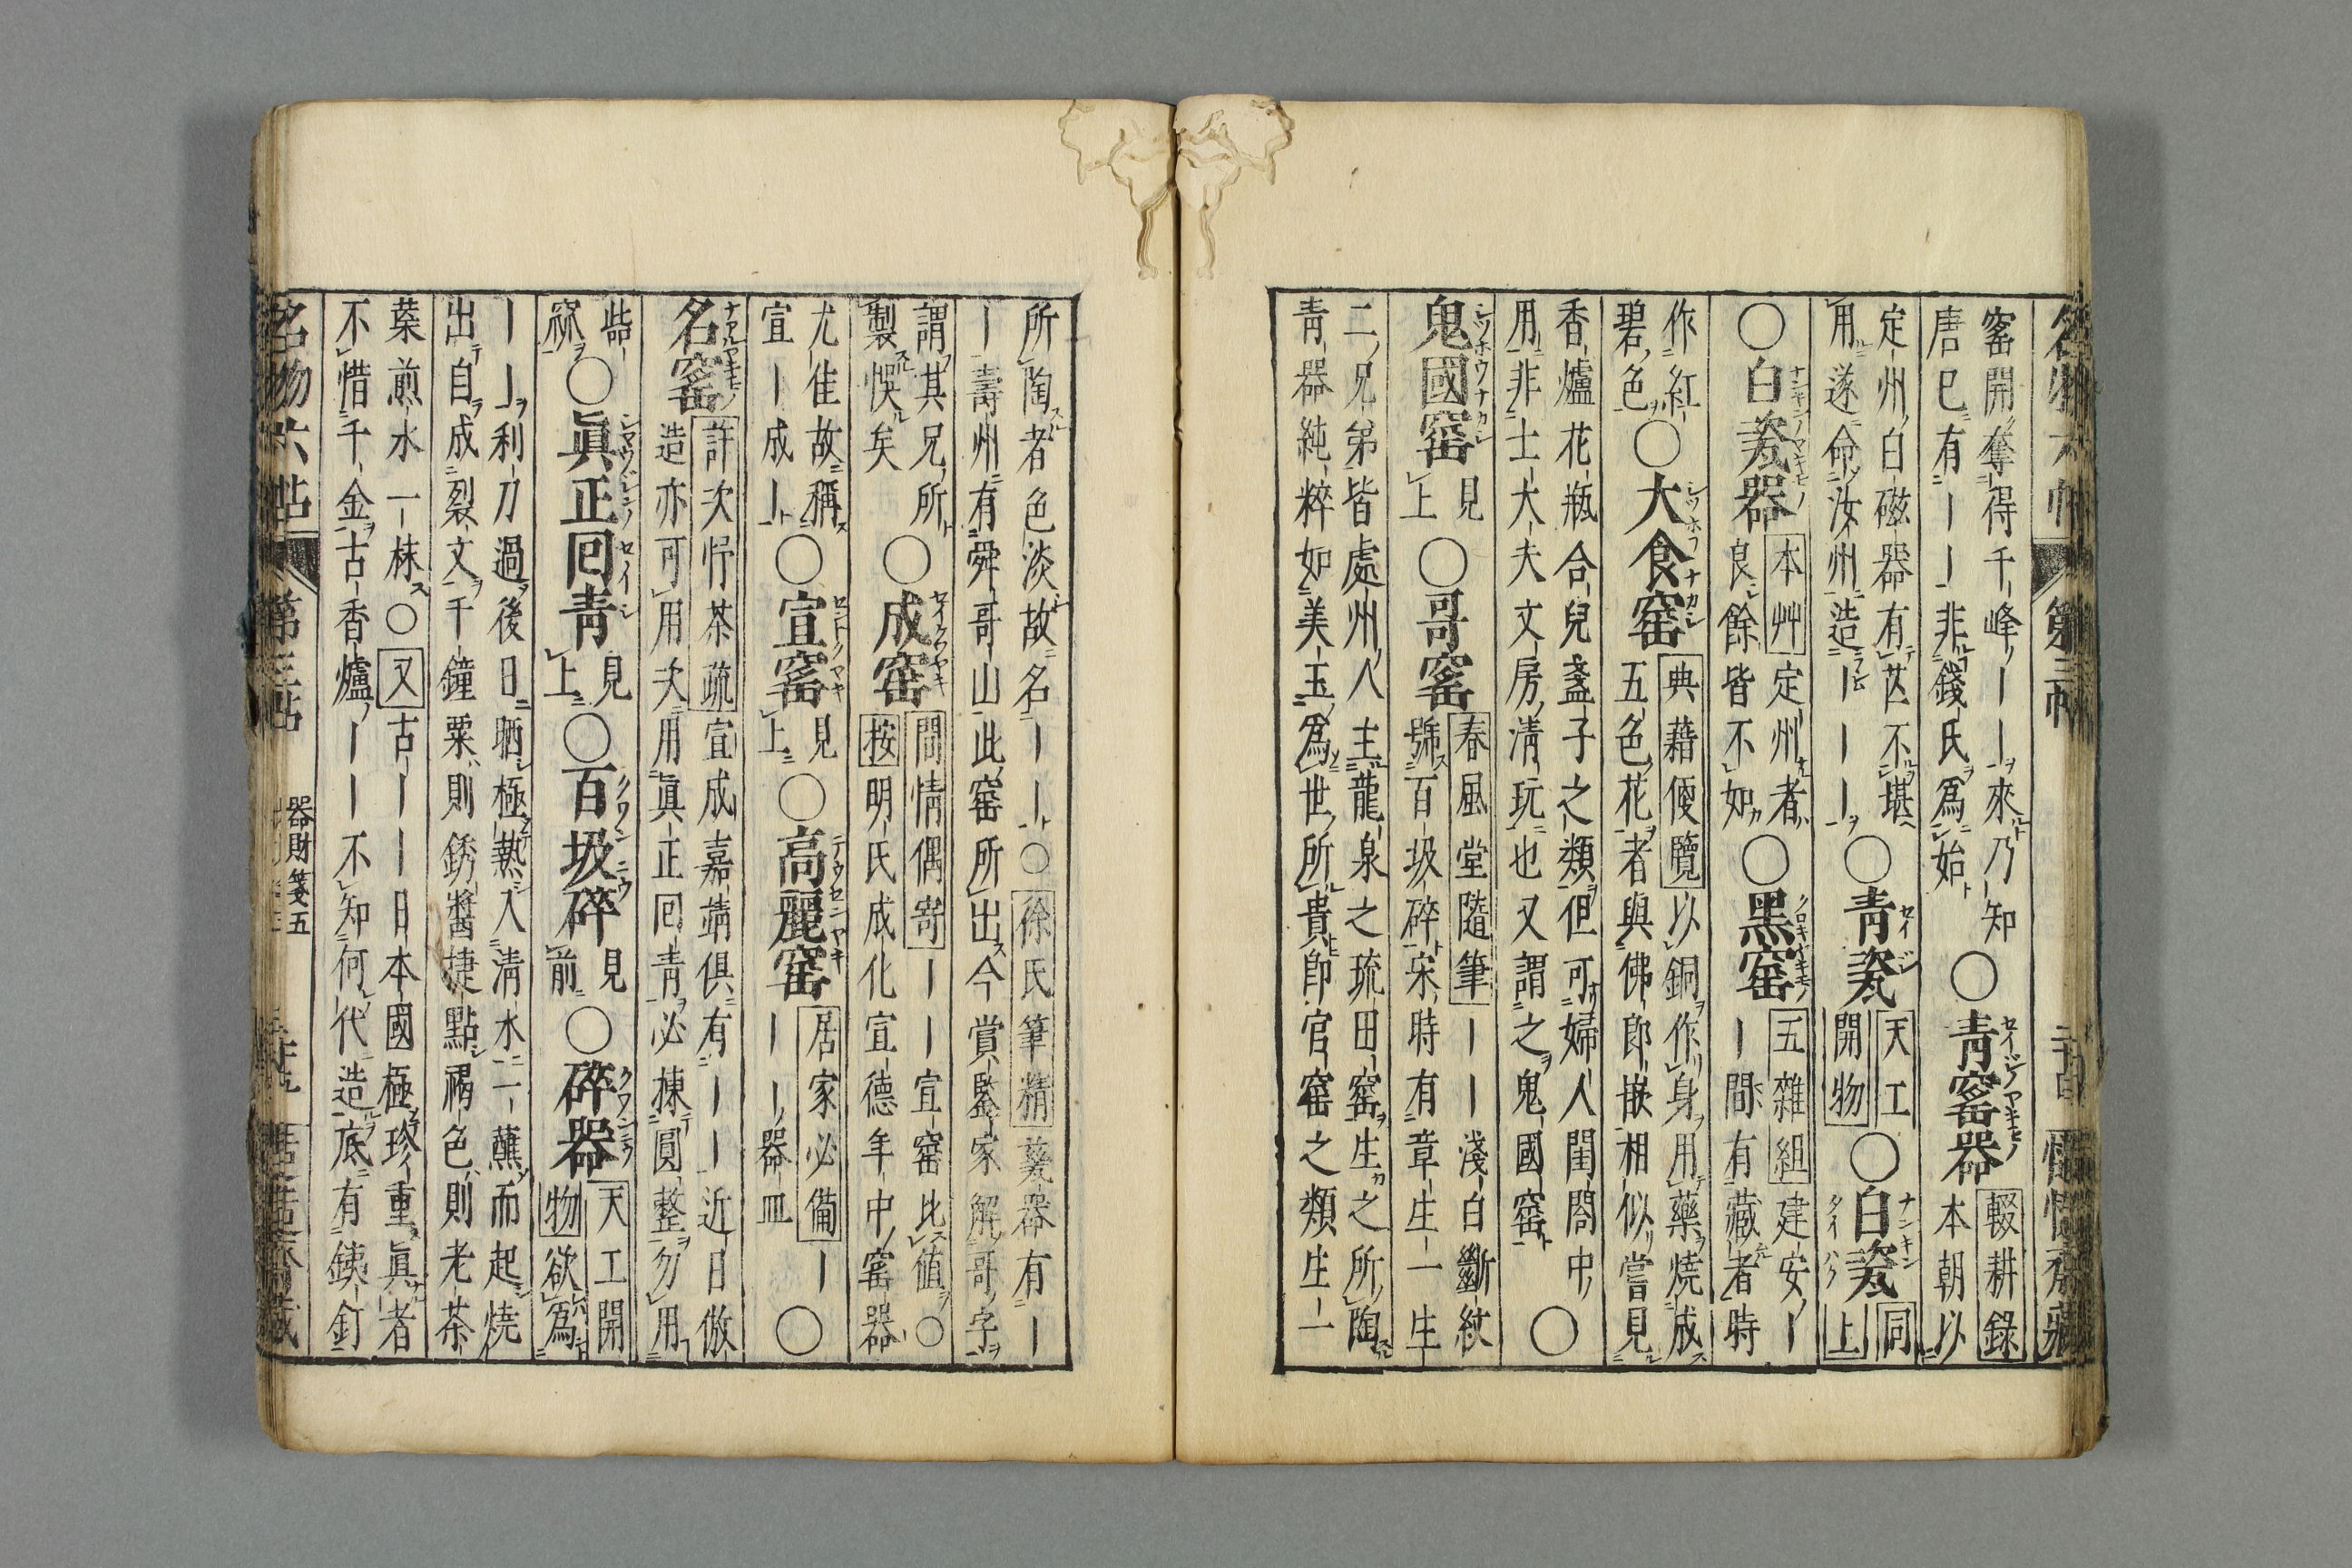 窰開奪得千峰〡〡來乃知
唐已有〡〡非錢氏爲始
〇靑窰器
輟耕錄
本朝以
定州白磁器有芒不堪
用遂命汝州造〡〡〡
〇靑瓷
天工
開物
〇白瓷
同
上
〇白瓷器
本艸定州者
良餘皆不如
〇黑窑
五雜組建安〡
〡間有藏者時
作紅
碧色
〇大食窑
典藉便覽以銅作身用藥燒成
五色花者與佛郎嵌相似嘗見
香爐花瓶合兒盞子之類但可婦人閨閤中
用非士大夫文房淸玩也又謂之鬼國窑
〇
鬼國窑
見
上
〇哥窰
春風堂隨筆〡〡淺白斷紋
號百圾碎宋時有章生一生
二兄弟皆處州人主龍泉之琉田窑生之所陶
靑器純粹如美玉爲世所貴卽官窑之類生一
所陶者色淡故名〡〡〇徐氏筆精羙器有〡
〡壽州有舜哥山此窑所出今賞鑒家解哥字
謂其兄所
製悞矣
〇成窑
間情偶寄〡〡宣窑比値〇
按明氏成化宣德年中窰器
尤佳故稱
宣〡成〡
〇宣窰
見
上
〇高麗窑
居家必備〡
〡〡器皿
〇
名窰
許次忬茶疏宣成嘉靖俱有〡〡近日倣
造亦可用次用眞正回靑必揀圓整勿用
啙
窳
〇眞正回靑
見
上
〇百圾碎
見
前
〇碎器
天工開
物欲爲
〡〡利刀過後日晒極熱入淸水一蘸而起燒
出自成裂文千鐘粟則銹醬捷點褐色則老茶
葉煎水一抹〇又古〡〡日本國極珍重眞者
不惜千金古香爐〡〡不知何代造底有鐵釘
名物六帖 第三帖 器財箋五